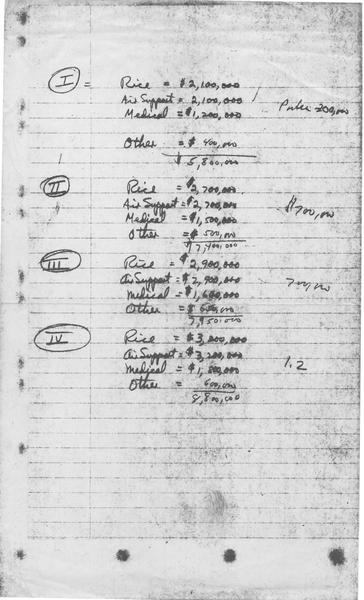 I = Rice = $2,100,000
Air Support = 2,100,000
Medical = $1,200,000
200,000
Other = $400,000
$5,800,000
II Rice = $2,700,000
Air Support = $2,700,000
$700,000
Medical = $1,500,000
Other = $500,000
$7,400,000
III Rice = $2,900,000
Air Support = $2,900,000
700,000
Medical = $1,600,000
Other =
7,950,000
IV Rice = $3,000,000
Air Support = $3,200,000
1.2
Medical = $1,800,000
Other = 600,000
8,800,000